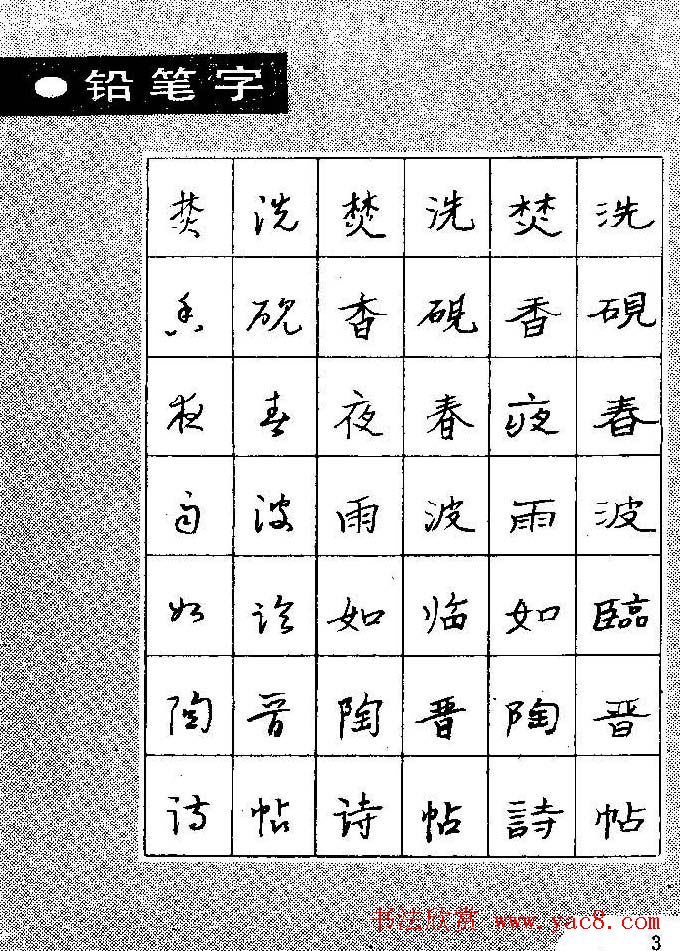 铅笔字
洗硯春波臨晋帖
焚香夜雨如陶詩
洗硯春波临晋帖
焚香夜雨如陶诗
洗砚春波临晋帖
焚香夜雨如陶诗
书法欣赏 www.yac8.com
3